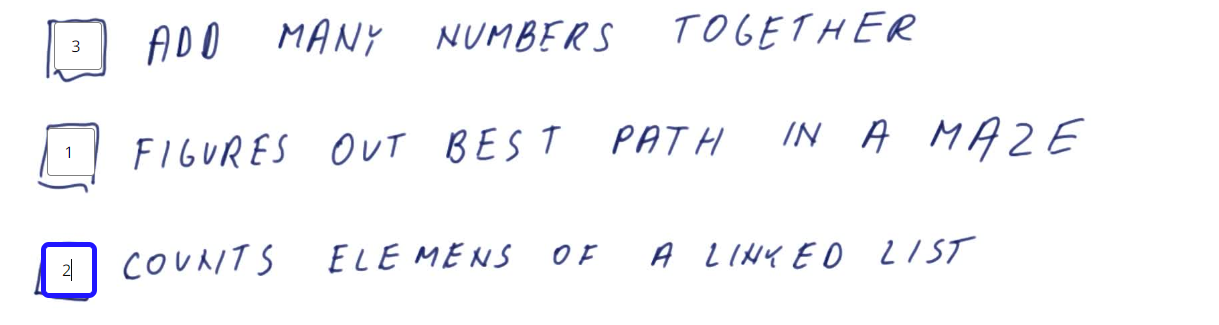 3 ADD MANY NUMBERS TOGETHER
1 FIGURES OUT BEST PATH IN A MAZE
2 COUNTS ELEMENS OF A LINKED LIST